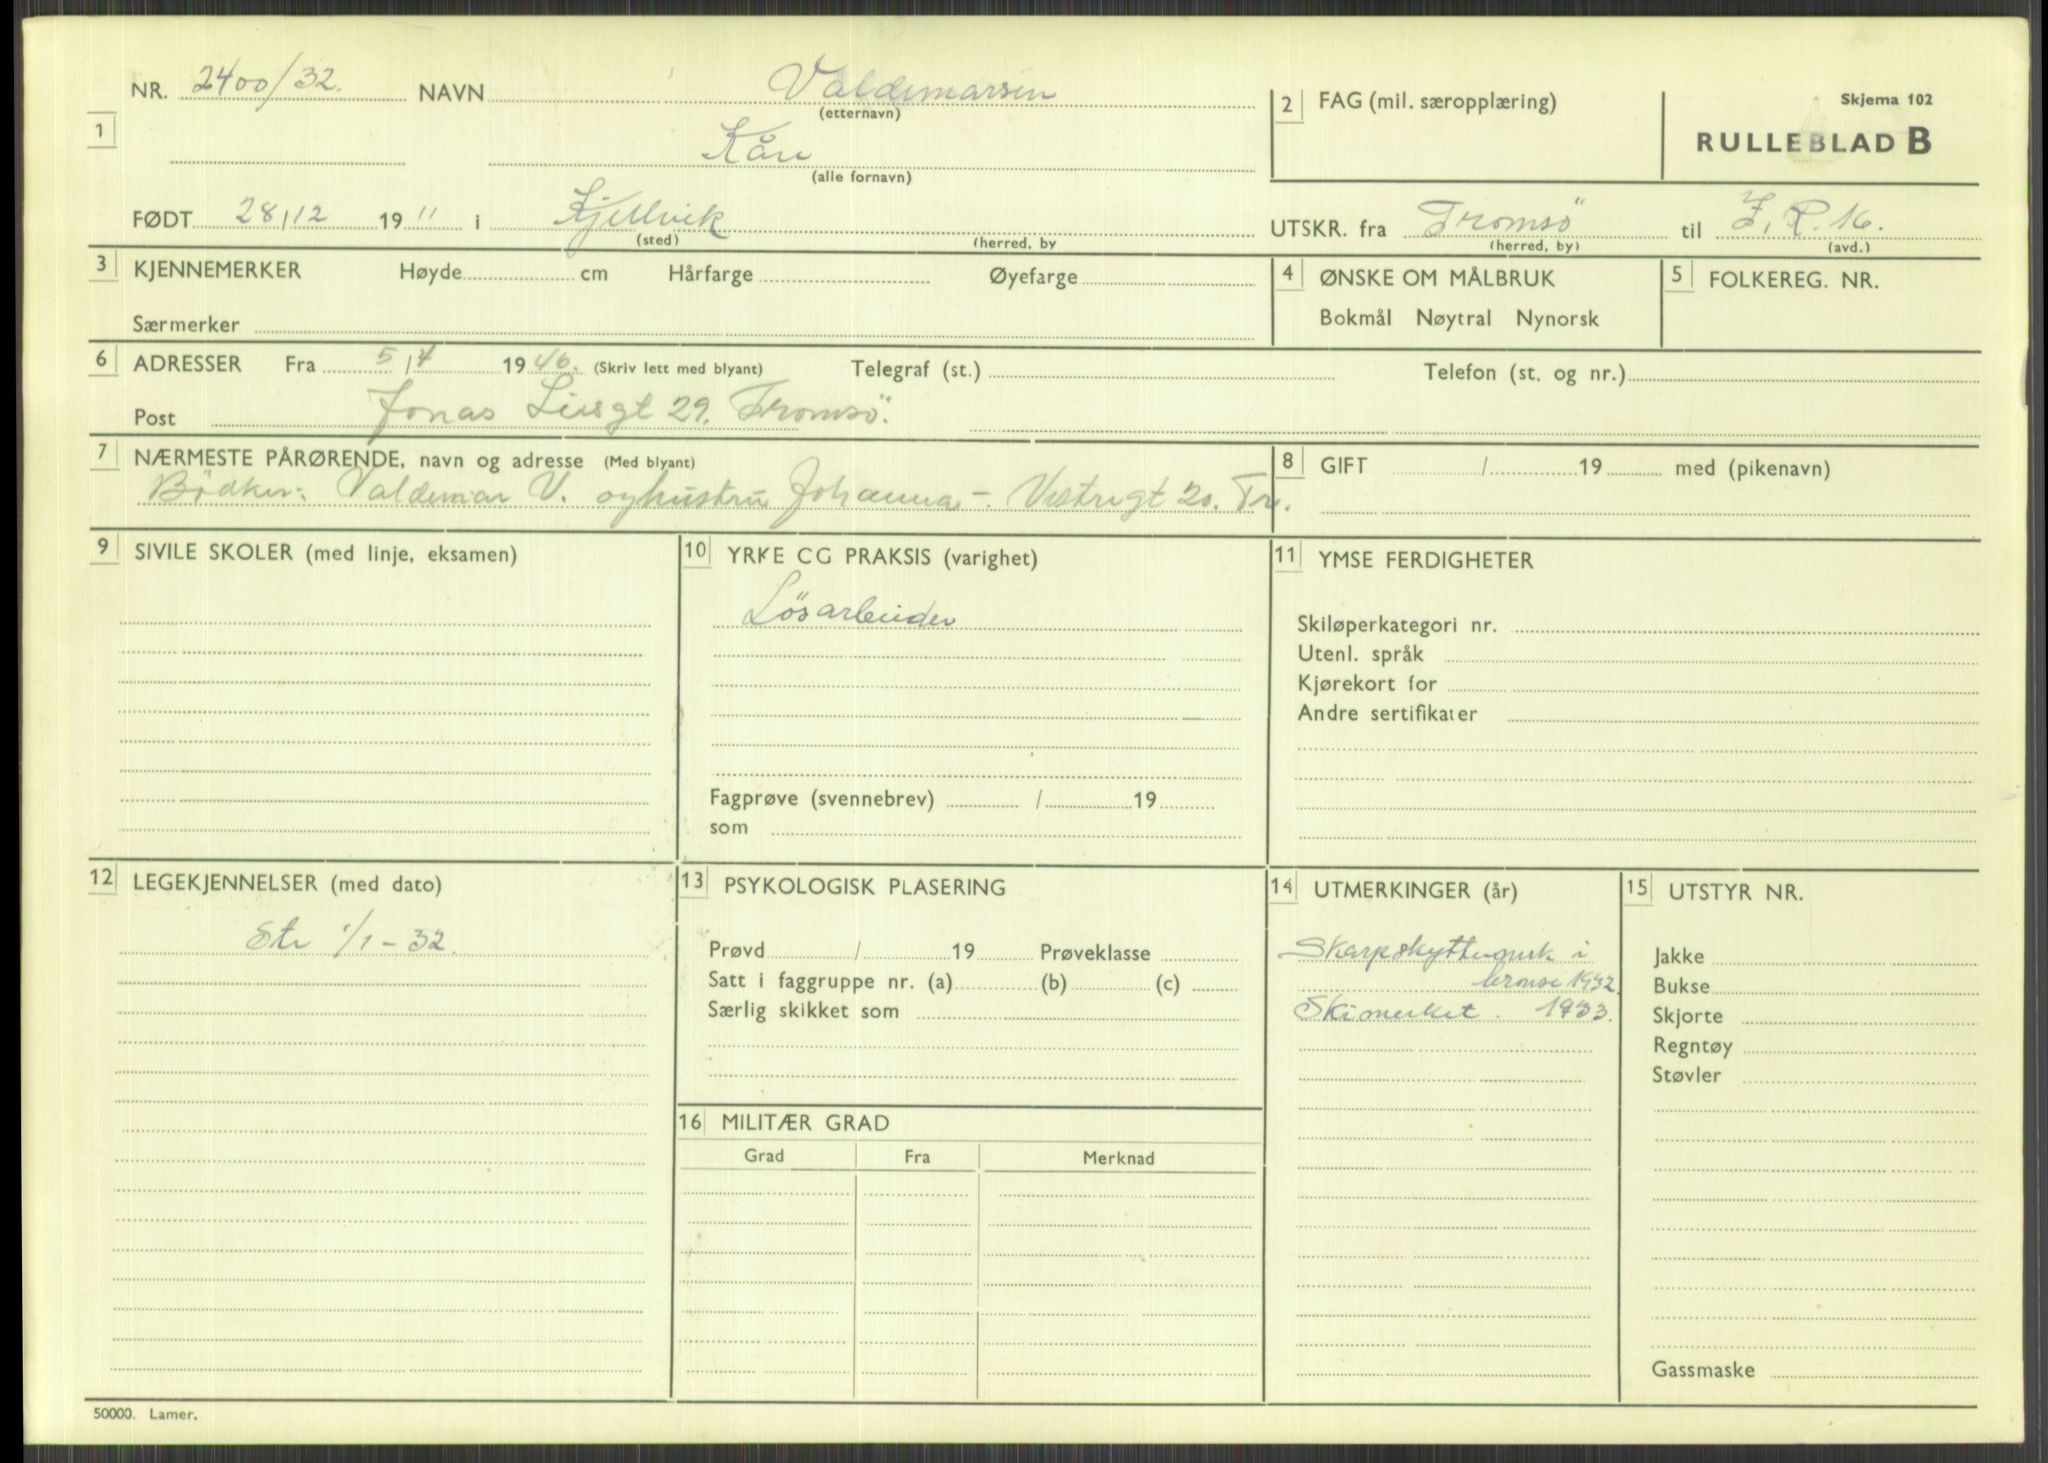 NR. 2400/32. NAVN Valdemarsen
(etternavn)
1
Kåre
(alle fornavn)
2 FAG (mil. særopplæring)
Skjema 102
RULLEBLAD B
FØDT 28/12 1911 i Kjelvik
(sted) (herred, by
UTSKR. fra Tromsö til I.R.16.
(herred, by) (avd.)
3 KJENNEMERKER Høyde cm Hårfarge Øyefarge
Særmerker
4 ØNSKE OM MÅLBRUK
Bokmål Nøytral Nynorsk
5 FOLKEREG. NR.
6 ADRESSER Fra 5/4 1946. (Skriv lett med blyant) Telegraf (st.) Telefon (st. og nr.)
Post Jonas Liesgt 29. Tromsö.
7 NÆRMESTE PÅRØRENDE, navn og adresse (Med blyant)
Bödker: Valdemar V. og hustru Johanna - Vestregt 20. Tr.
8 GIFT / 19 med (pikenavn)
9 SIVILE SKOLER (med linje, eksamen)
10 YRKE CG PRAKSIS (varighet)
Lösarbeider
Fagprøve (svennebrev) / 19
som
11 YMSE FERDIGHETER
Skiløperkategori nr.
Utenl. språk
Kjørekort for
Andre sertifikater
12 LEGEKJENNELSER (med dato)
Str 1/1-32.
13 PSYKOLOGISK PLASERING
Prøvd / 19 Prøveklasse
Satt i faggruppe nr. (a) (b) (c)
Særlig skikket som
14 UTMERKINGER (år)
Skarpskyttermerk i
bronse 1932.
Skimerket. 1933.
15 UTSTYR NR.
Jakke
Bukse
Skjorte
Regntøy
Støvler
Gassmaske
16 MILITÆR GRAD
Grad Fra Merknad
50000. Lamer.